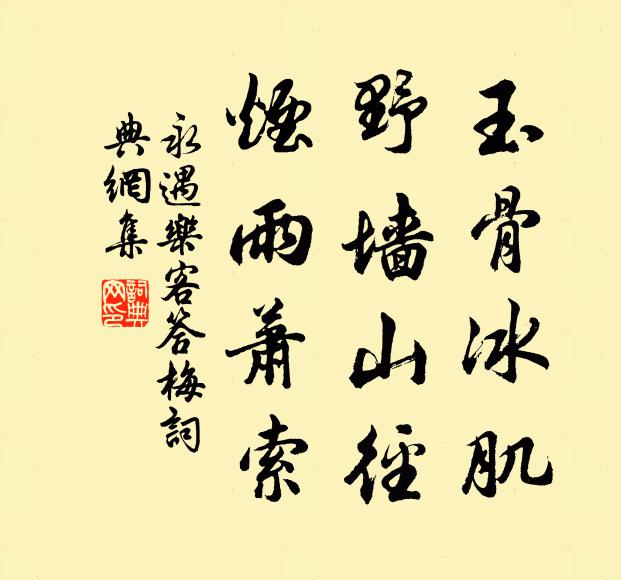 玉骨冰肌
野墙山径
煙雨萧索
永遇樂客答梅詞
典網集
詞典
网印